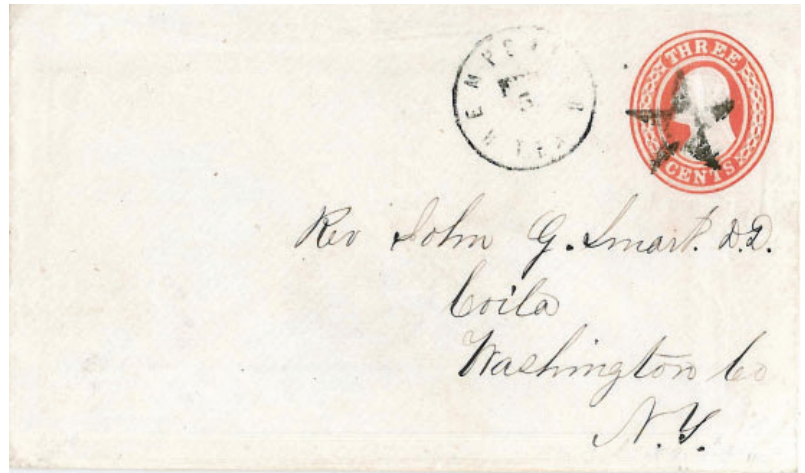 THREE
CENTS
Rev John G. Smart. D.D.
Coila
Washington Co
N.Y.